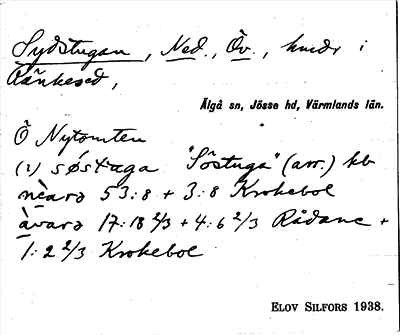 Sydstugan, Ned., Öv., hmdr i
Ränkesed,
Älgå sn, Jösse hd, Värmlands län.
Ö Nytomten
(1) søstuga "Söstuga" (arr.) kb
nèara 53:8 + 3:8 Krokebol
àvara 17:18 2/3 + 4:6 2/3 Rådane +
1:2 2/3 Krokebol
ELOV SILFORS 1938.